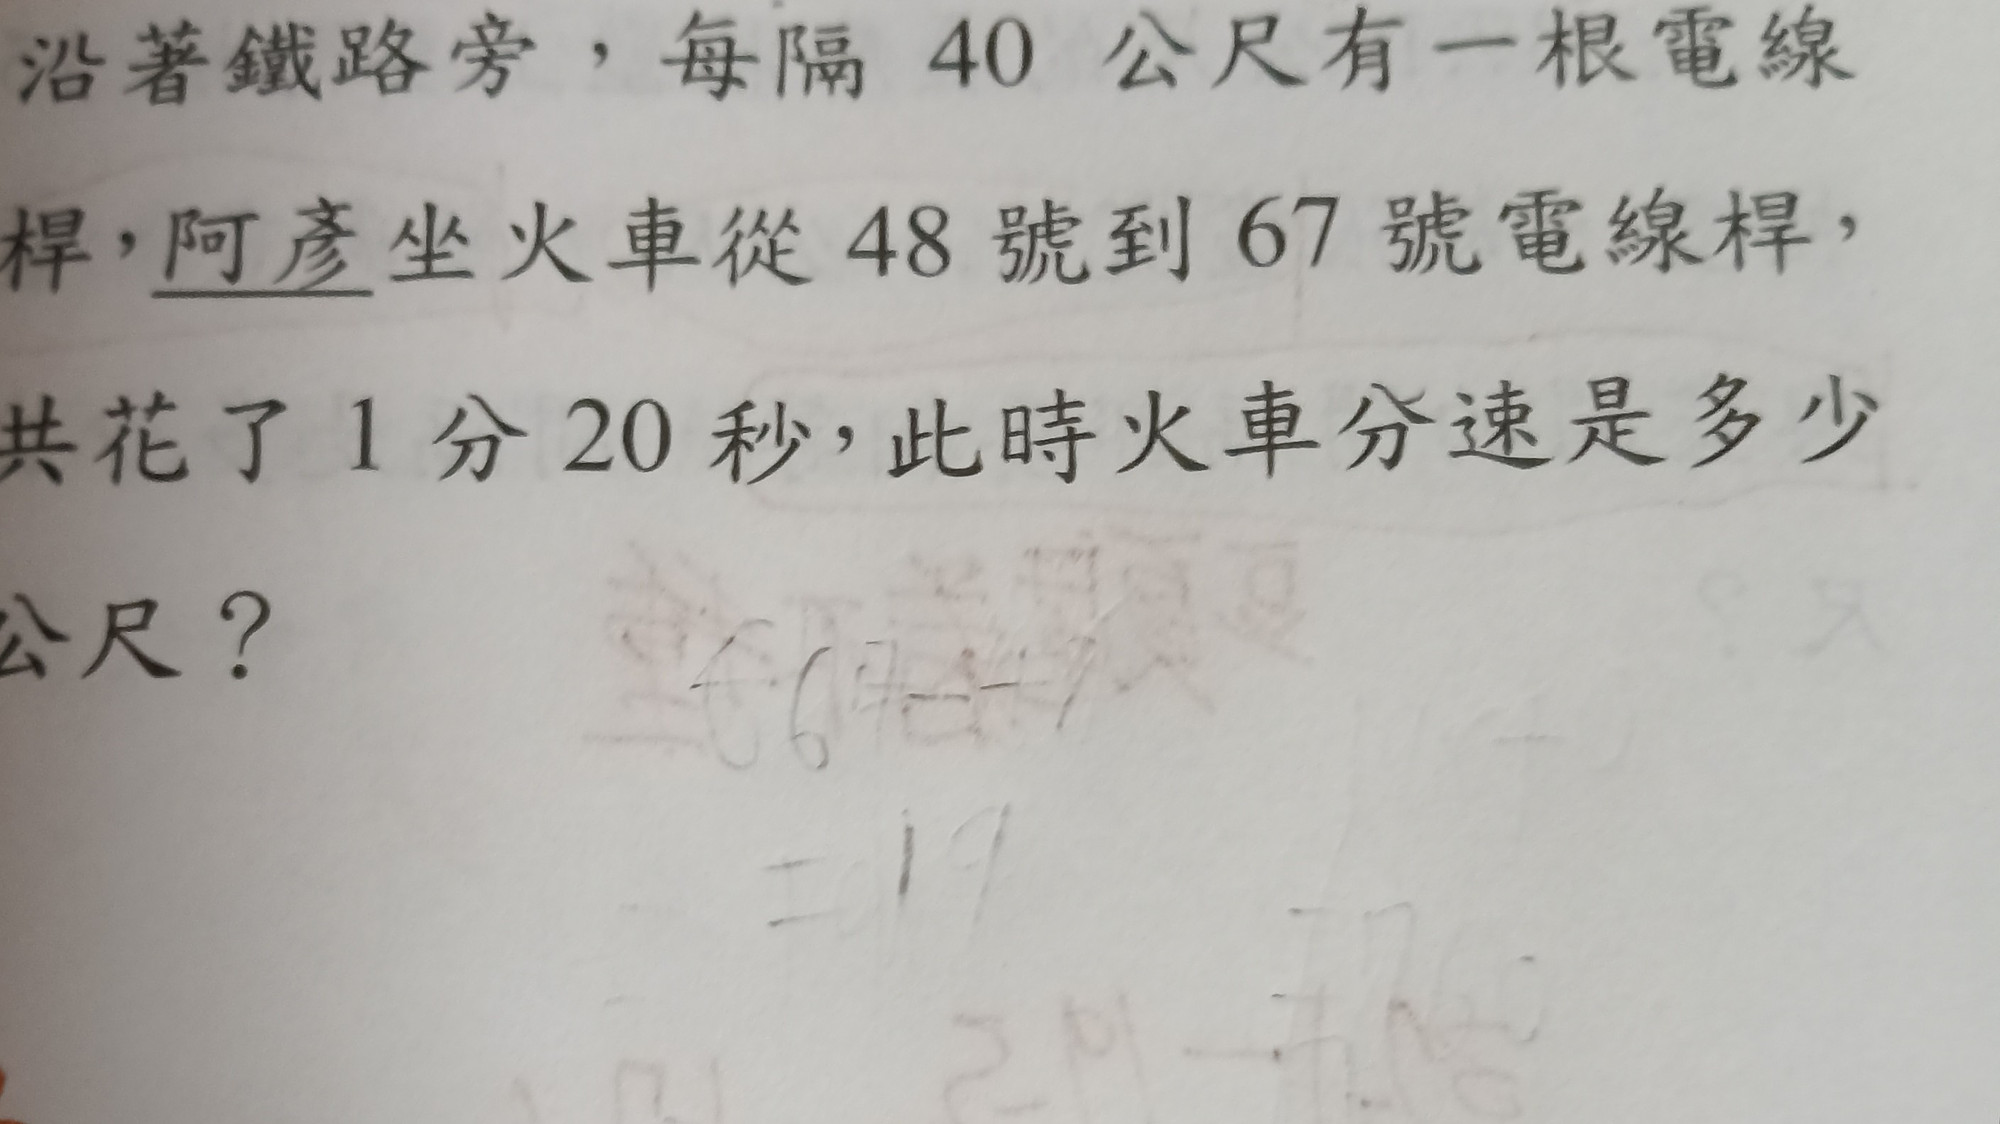 沿著鐵路旁，每隔 40 公尺有一根電線
桿，阿彥坐火車從 48 號到 67 號電線桿，
共花了 1 分 20 秒，此時火車分速是多少
公尺？
= 19